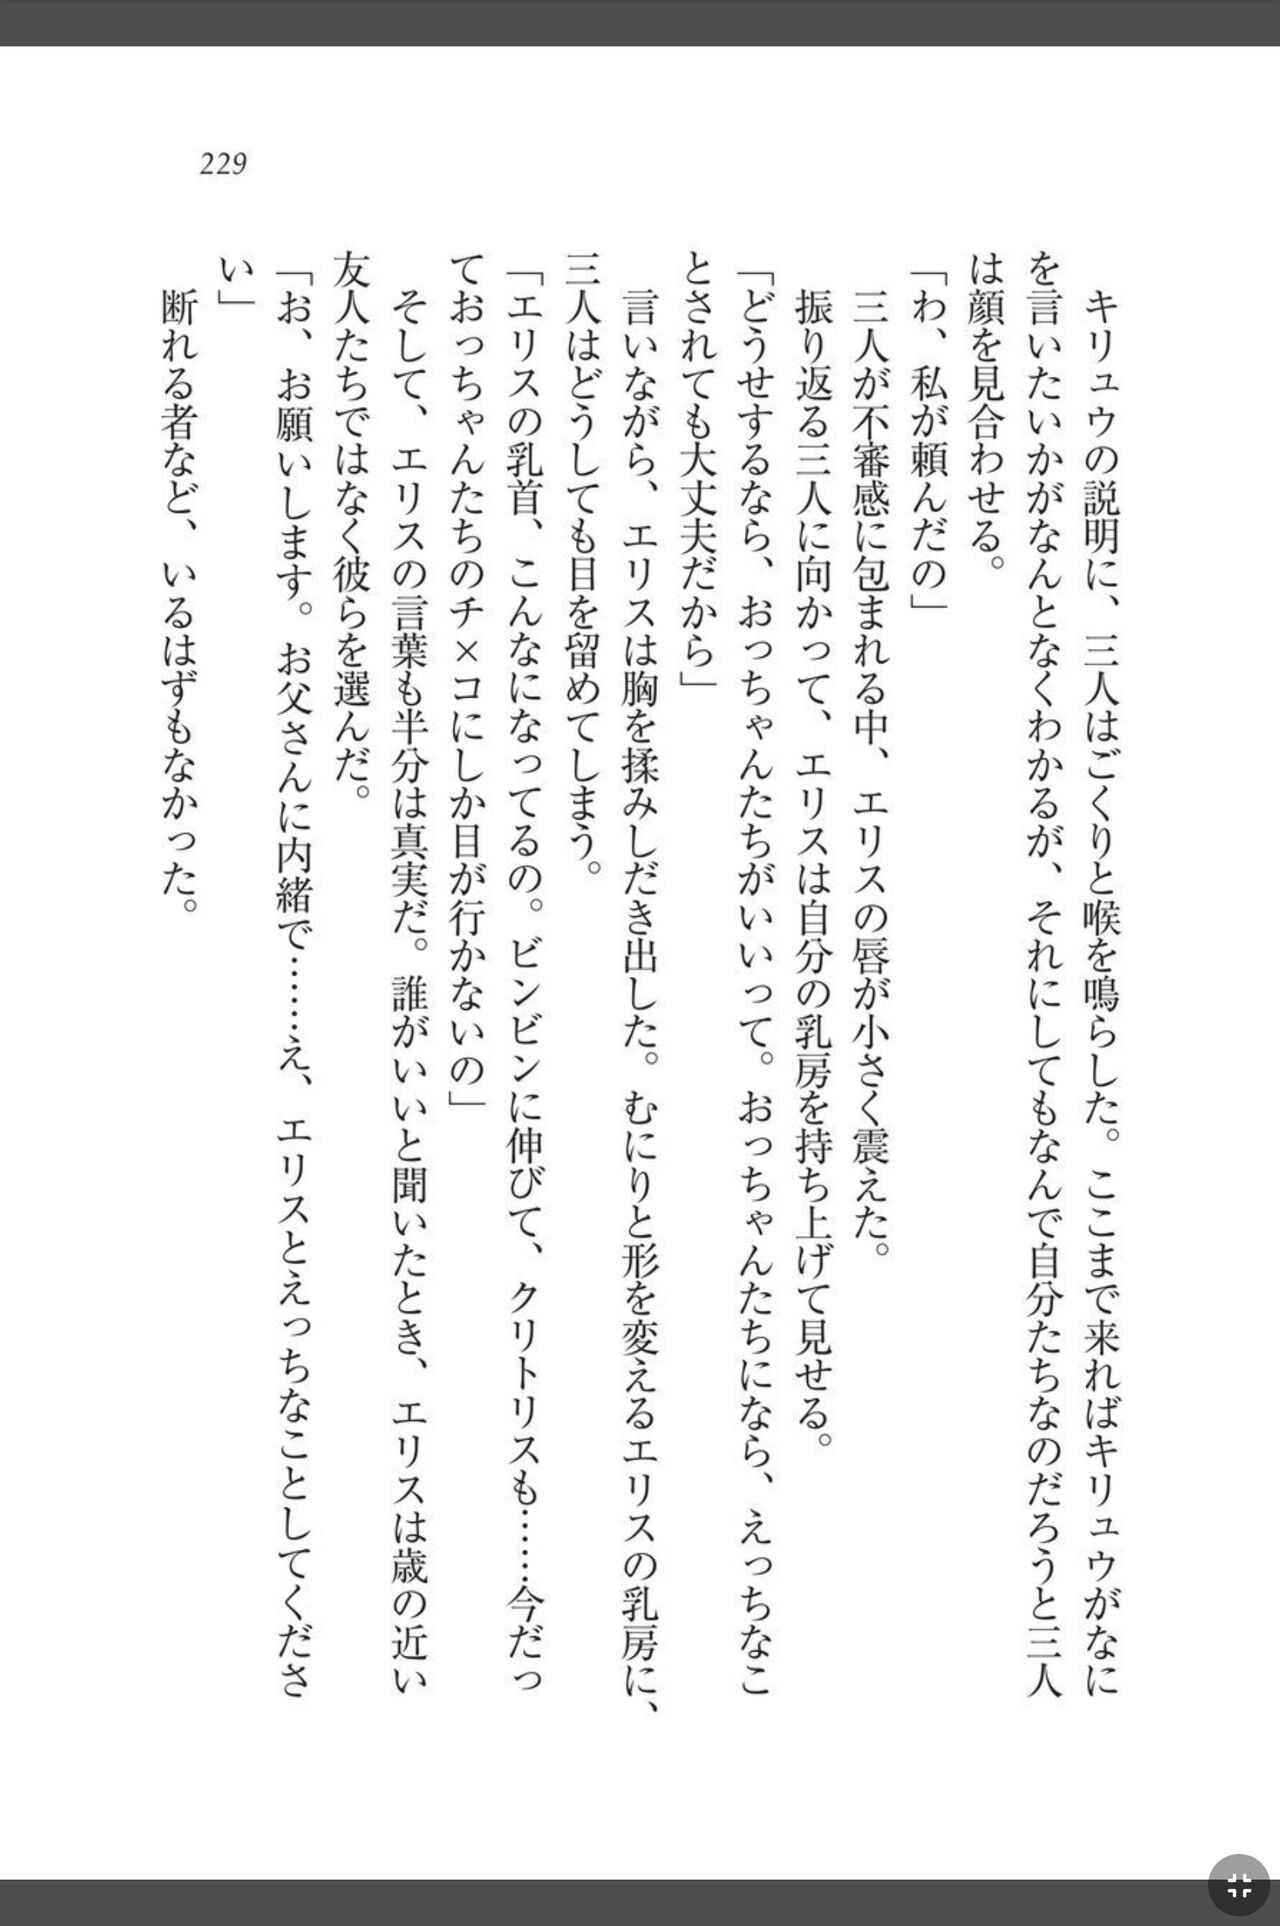 229
キリュウの説明に、三人はごくりと喉を鳴らした。ここまで来ればキリュウがなに
を言いたいかがなんとなくわかるが、それにしてもなんで自分たちなのだろうと三人
は顔を見合わせる。
「わ、私が頼んだの」
三人が不審感に包まれる中、エリスの唇が小さく震えた。
振り返る三人に向かって、エリスは自分の乳房を持ち上げて見せる。
「どうせするなら、おっちゃんたちがいいって。おっちゃんたちになら、えっちなこ
とされても大丈夫だから」
言いながら、エリスは胸を揉みしだき出した。むにりと形を変えるエリスの乳房に、
三人はどうしても目を留めてしまう。
「エリスの乳首、こんなになってるの。ビンビンに伸びて、クリトリスも……今だっ
ておっちゃんたちのチ×コにしか目が行かないの」
そして、エリスの言葉も半分は真実だ。誰がいいと聞いたとき、エリスは歳の近い
友人たちではなく彼らを選んだ。
「お、お願いします。お父さんに内緒で……え、エリスとえっちなことしてくださ
い」
断れる者など、いるはずもなかった。